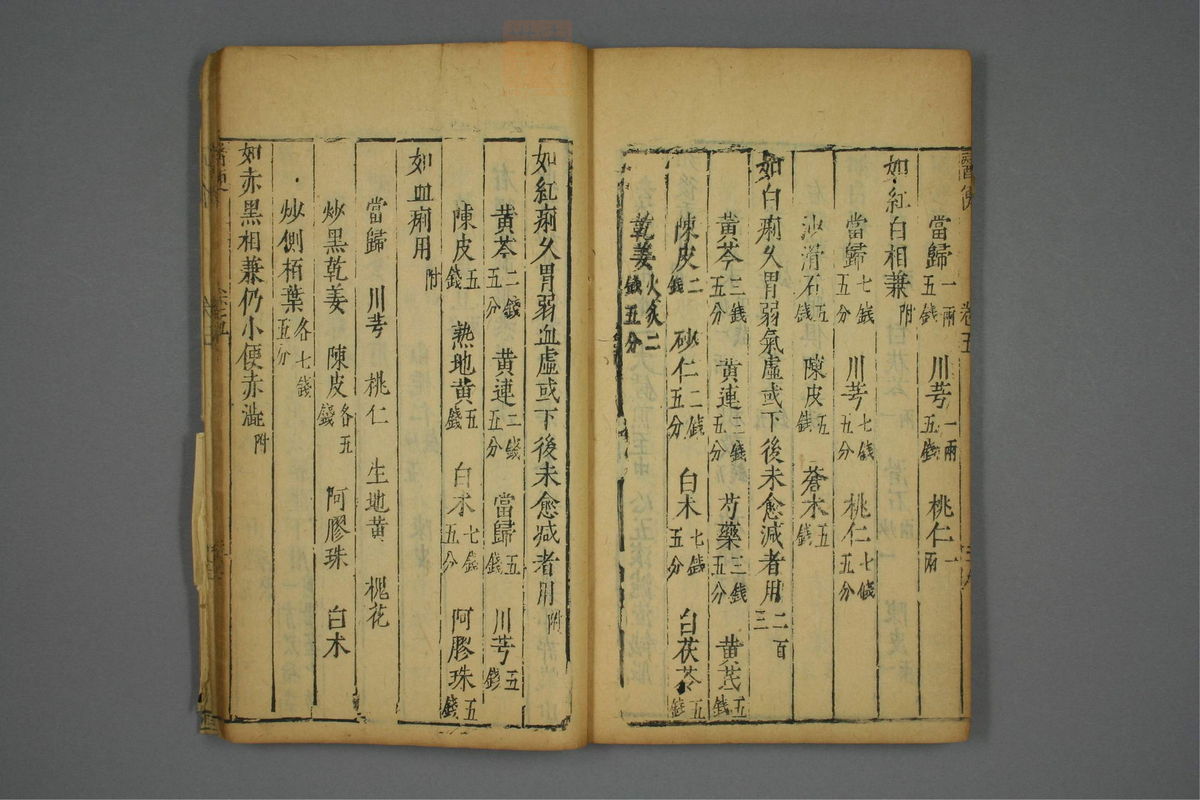 當歸一兩五錢 川芎一兩五錢 桃仁一兩
如紅白相兼附
當歸七錢五分 川芎七錢五分 桃仁七錢五分
滑石五錢 陳皮五錢 蒼朮五錢
如白痢久胃弱氣虛或下後未愈減者用二百三
黃芩三錢五分 黃連三錢五分 芍藥三錢五分 黃芪五錢
陳皮二錢 砂仁二錢五分 白朮七錢五分 白茯苓五錢
乾姜火炙二錢五分
如紅痢久胃弱血虛或下後未愈减者用附
黃芩二錢五分 黃連二錢五分 當歸五錢 川芎五錢
陳皮五錢 熟地黃五錢 白朮七錢五分 阿膠珠五錢
如血痢用附
當歸 川芎 桃仁 生地黃 槐花
炒黑乾姜 陳皮各五錢 阿膠珠 白朮
炒側栢葉各七錢五分
如赤黑相兼仍小便赤澁附